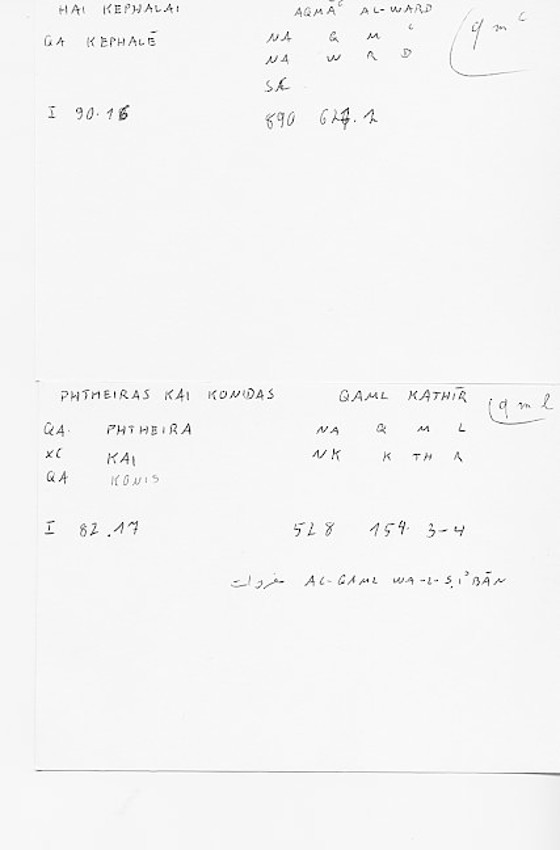 HAI KEPHALAI AQMĀʿ AL-WARD q m ʿ
QA KEPHALĒ NA Q M ʿ
NA W R D
I 90.16 890 .2
PHTHEIRAS KAI KONIDAS QAML KATHĪR q m l
QA PHTHEIRA NA Q M L
XC KAI NK K TH R
QA KONIS
I 82.17 528 154 3-4
مفردات AL-QAML WA-L-ṢIʾBĀN